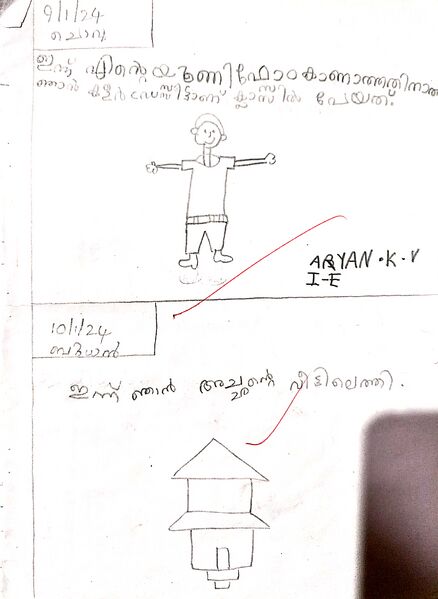 9/1/24
ചൊവ്വ
ഇന്ന് എൻ്റെ യൂണിഫോം കാണാത്തതിനാൽ
ഞാൻ കളർ ഡ്രസ്സിട്ടാണ് ക്ലാസിൽ പോയത്.
ARYAN.K.V
I-E
10/1/24
ബുധൻ
ഇന്ന് ഞാൻ അച്ഛൻ്റെ വീട്ടിലെത്തി.